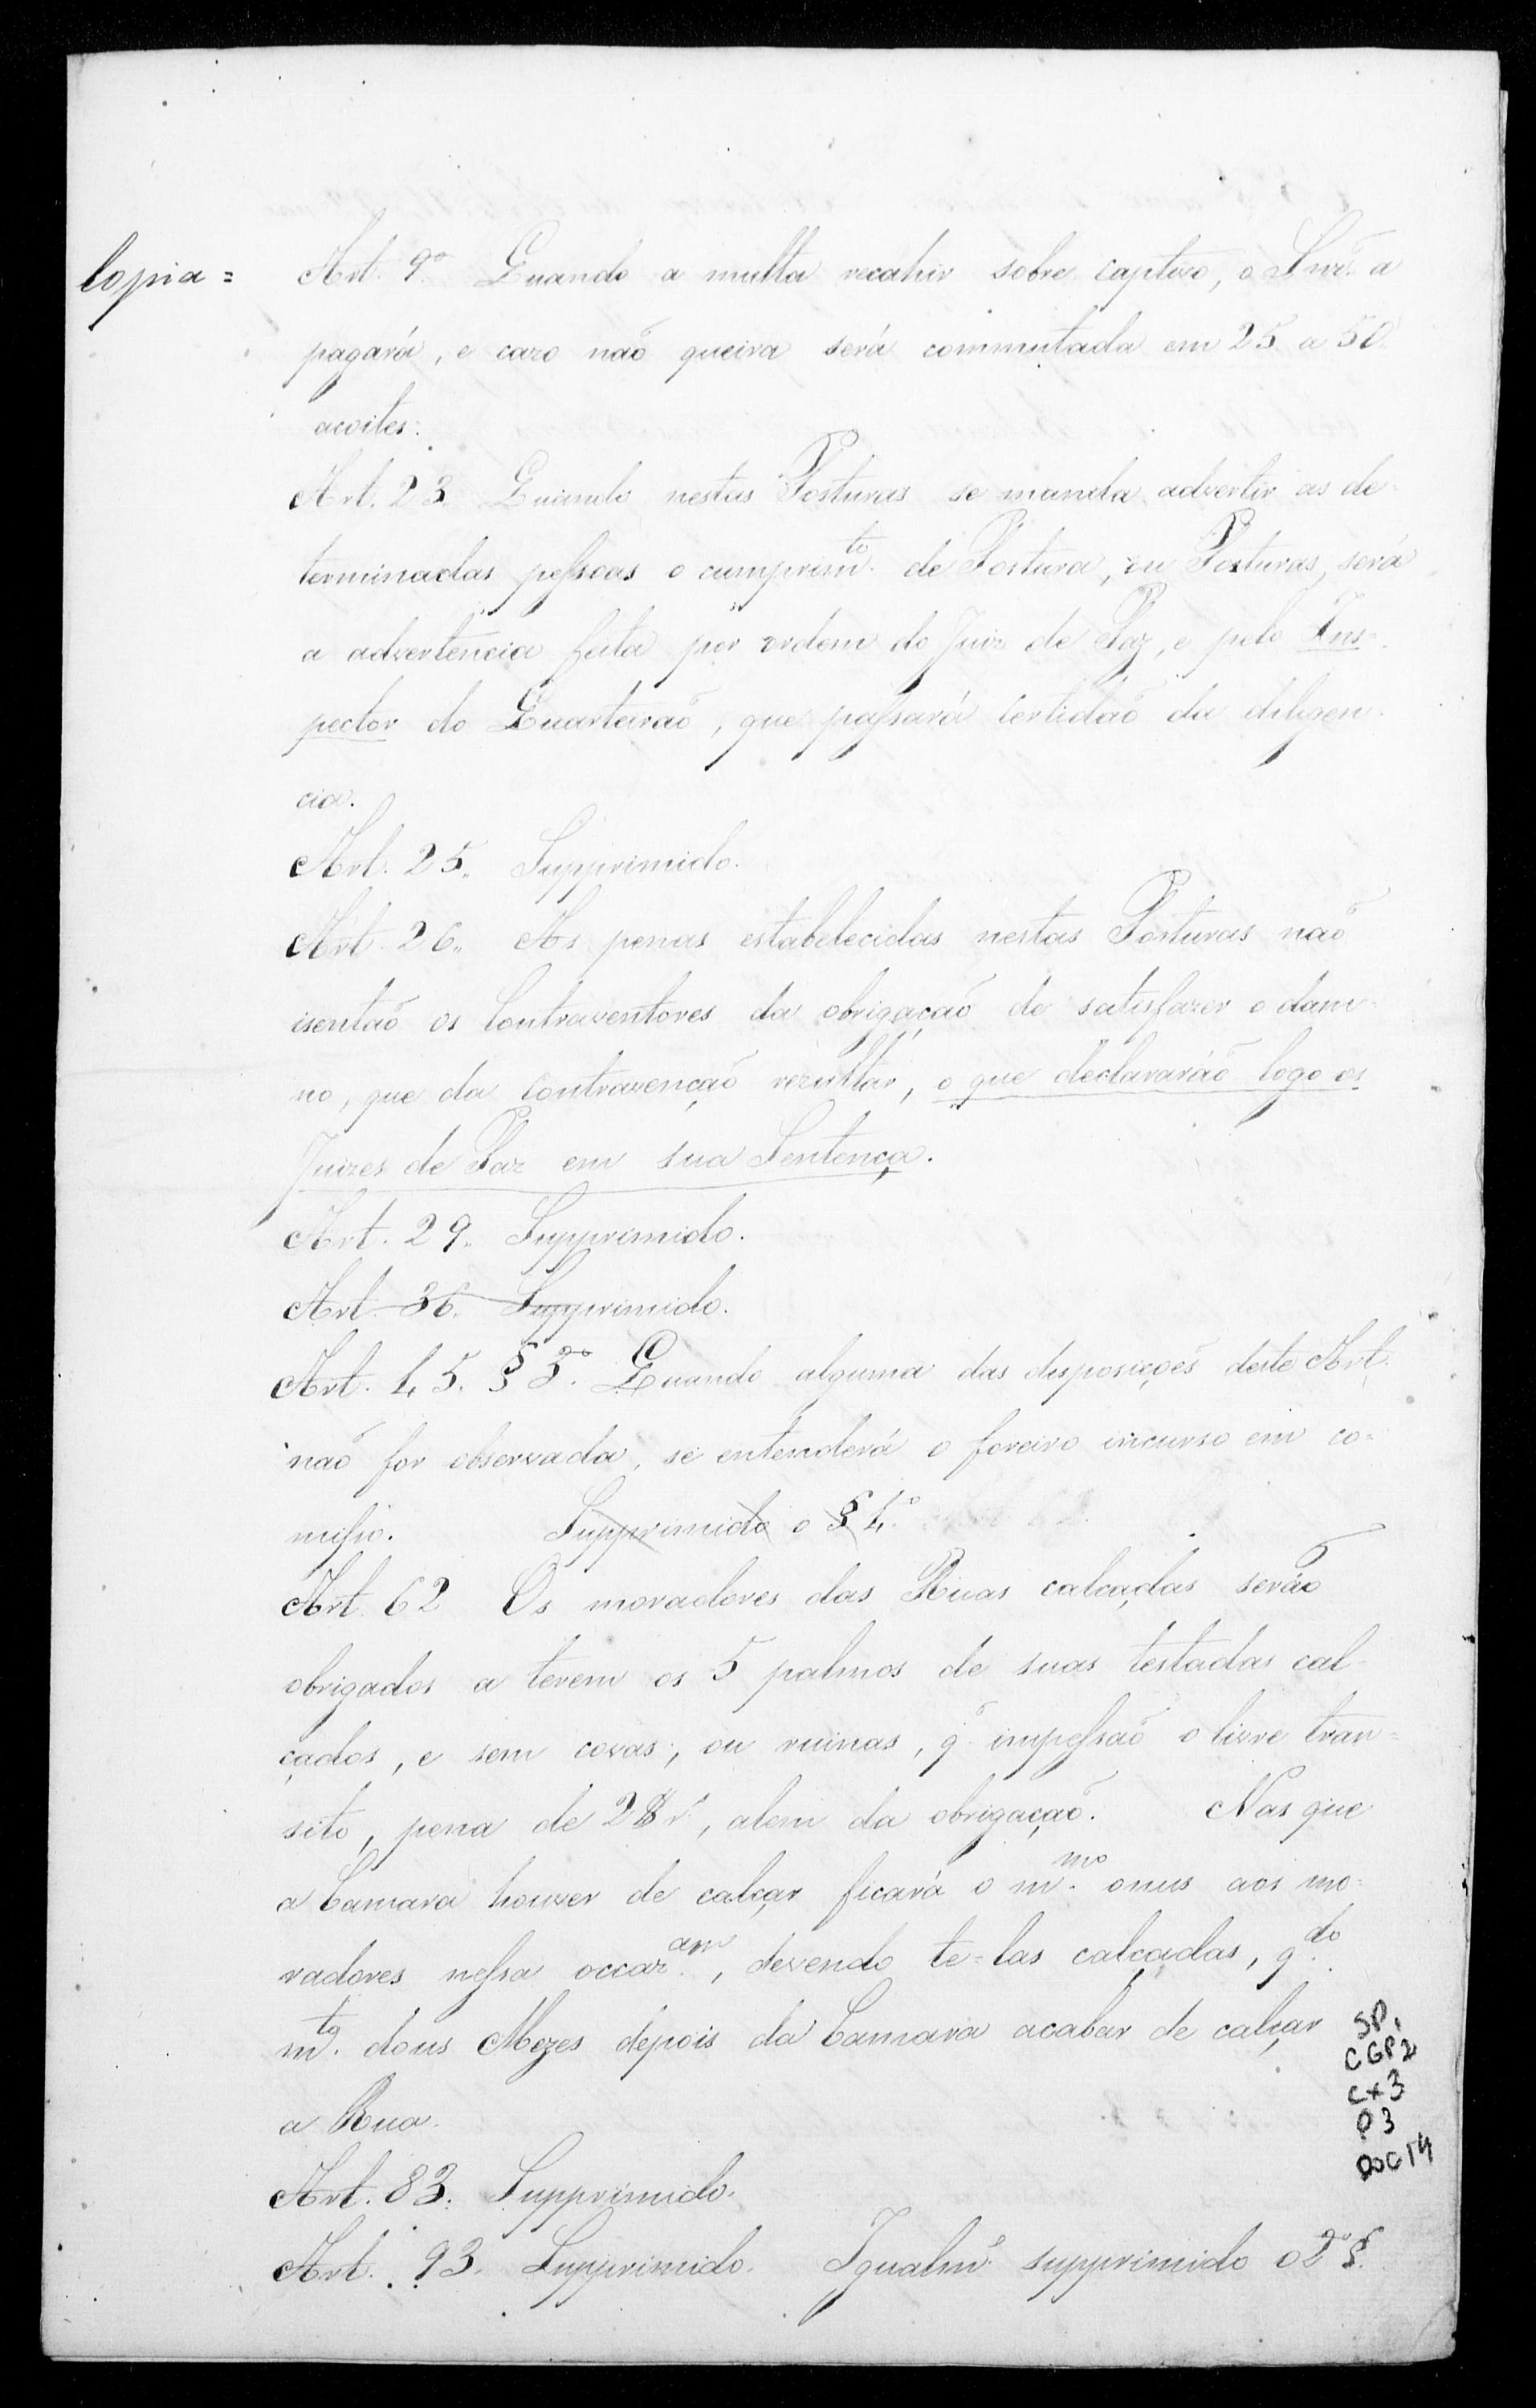 Copia =
Art. 9.º Quando a multa recahir sobre captivo, o Snr. a
pagará, e cazo naõ queira será commutada em 25 a 50
acoites.
Art. 23. Quando nestas Posturas se manda advertir as de-
terminadas peſsoas o cumprim.to de Postura, ou Posturas, será
a advertencia feita por ordem do Juiz de Paz, e pelo Ins-
pector do Quarteiraõ, que paſsará Certidaõ da diligen-
cia.
Art. 25. Supprimido.
Art. 26. As penas estabelecidas nestas Posturas naõ
isentaõ os Contraventores da obrigaçaõ de satisfazer o dam-
no, que da Contravençaõ rezultar, o que declararáõ logo os
Juizes de Paz em sua Sentença.
Art. 29. Supprimido.
Art. 36. Supprimido.
Art. 45. § 3.º Quando alguma das disposiçoẽs deste Art.
naõ for observada, se entenderá o foreiro incurso em co-
miſso. Supprimido o § 4.º
Art. 62 Os moradores das Ruas calcadas seraõ
obrigados a terem os 5 palmos de suas testadas cal-
çados, e sem covas, ou ruinas, q. impeſsaõ o livre tran-
sito, pena de 2$ r.s, alem da obrigaçaõ. Nas que
a Camara houver de calçar ficará o m.mo onus aos mo-
radores neſsa occaz.am, devendo te-las calçadas, q.do
m.to dous Mezes depois da Camara acabar de calçar
a Rua.
Art. 83. Supprimido.
Art. 93. Supprimido. Igualm.e supprimido o 2.º §.
SP.
CGP2
CX3
P3
DOC14